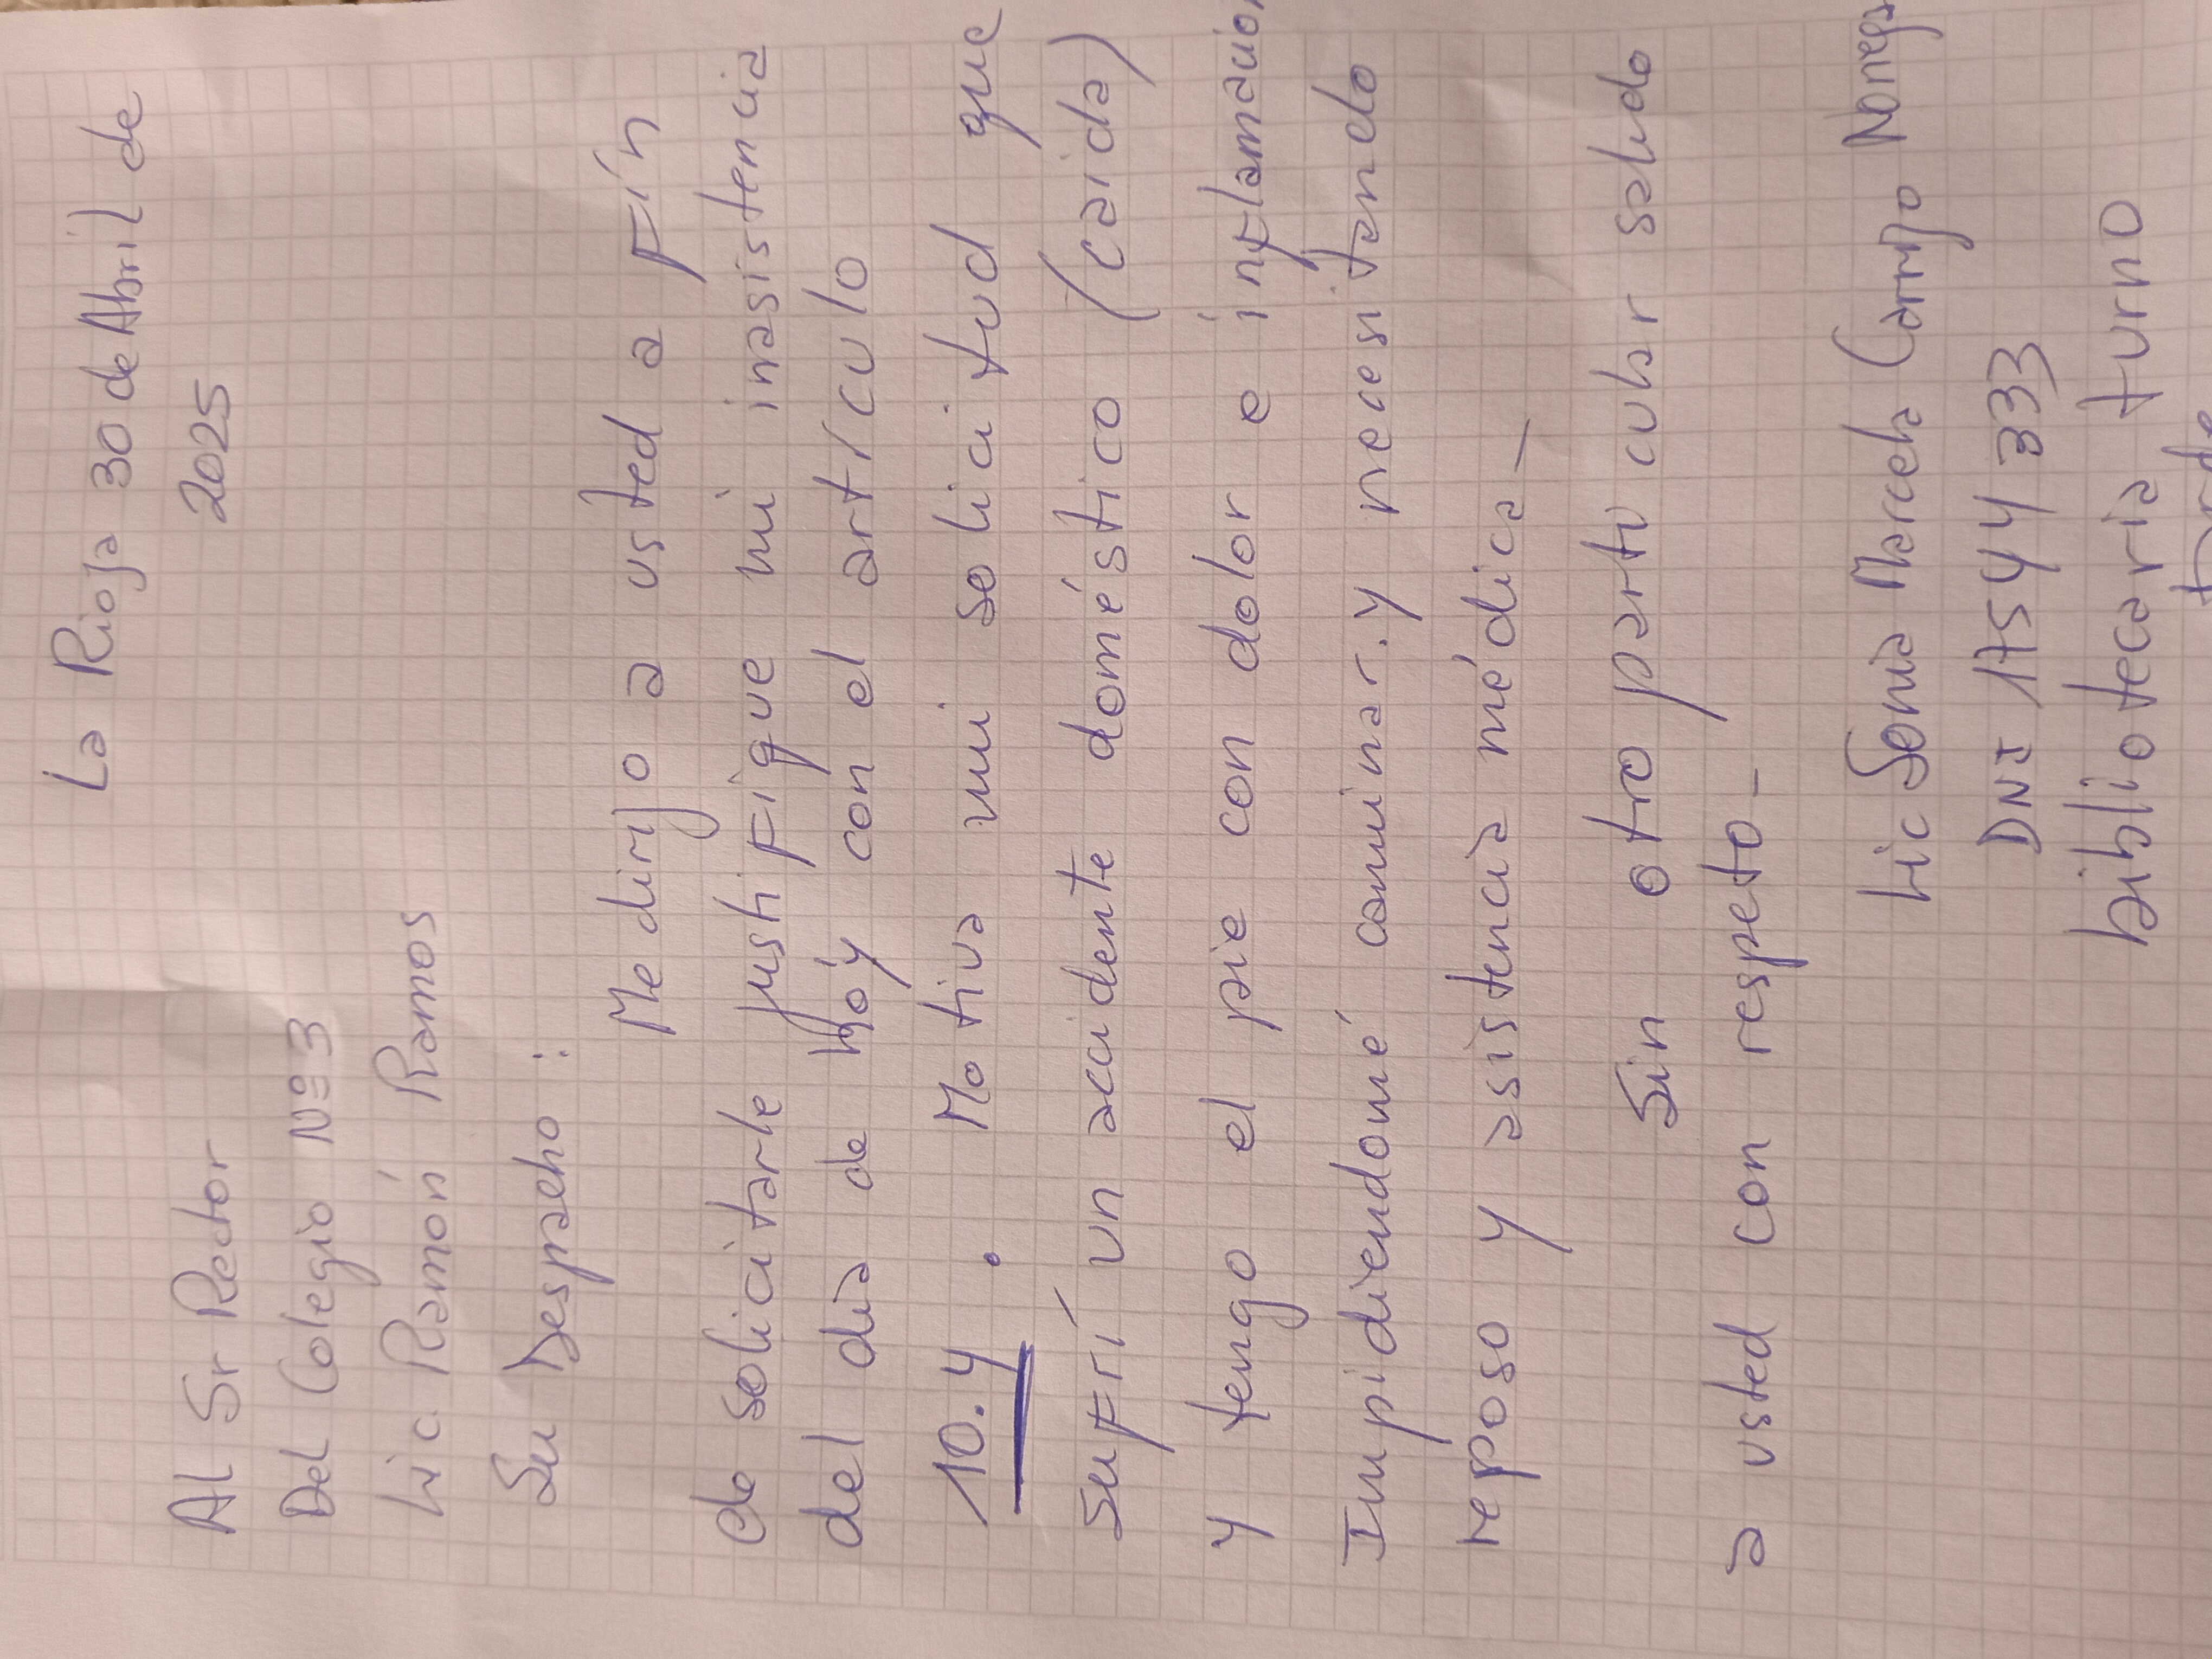 La Rioja 30 de Abril de
2025
Al Sr Rector
Del Colegio Nº 3
Lic Ramón Ramos
Su Despacho :
Me dirijo a usted a Fín
de solicitarle justifique mi inasistencia
del día de Hoy con el artículo
10.4 . Motiva mi solicitud que
sufrí un accidente doméstico (caida)
y tengo el pie con dolor e inflamación
Impidiendomé caminar. y necesitando
reposo y asistencia médica —
Sin otro particular saludo
a usted con respeto –
Lic Sonia Marcela Carrizo
DNI 17544333
bibliotecaria turno